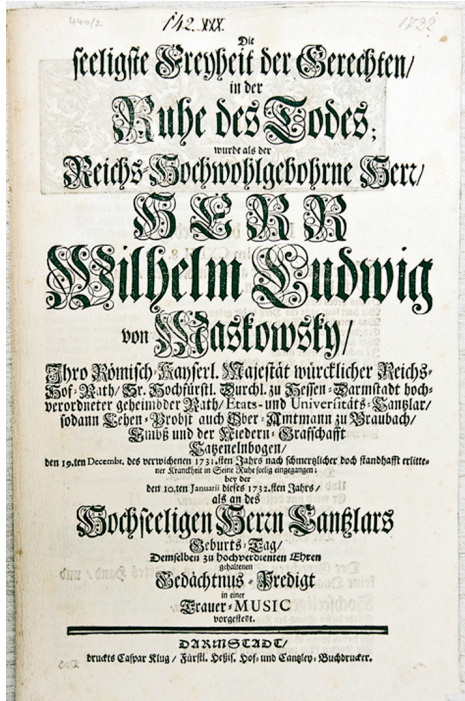 440/2 142. XXX. 1732
Die
seeligste Freyheit der Gerechten/
in der
Ruhe des Todes;
wurde als der
Reichs-Hochwohlgebohrne Herr/
HERR
Wilhelm Ludwig
von Maskowsky/
Ihro Römisch-Kayserl. Majestät würcklicher Reichs-
Hof-Rath/ Sr. Hochfürstl. Durchl. zu Hessen-Darmstadt hoch-
verordneter geheimbder Rath/ Etats- und Universitäts-Cantzlar/
sodann Lehen-Probst auch Ober-Amtmann zu Braubach/
Embß und der Niedern-Graffschafft
Catzenelnbogen/
den 19.ten Decembr. des verwichenen 1731.sten Jahrs nach schmertzlicher doch standhafft erlitte-
ner Kranckheit in Seine Ruhe seelig eingegangen;
bey der
den 10.ten Januarii dieses 1732.sten Jahrs/
als an des
Hochseeligen Herrn Cantzlars
Geburts-Tag/
Demselben zu hochverdienten Ehren
gehaltenen
Gedächtnus-Predigt
in einer
Trauer-MUSIC
vorgestellt.
DARMSTADT/
druckts Caspar Klug / Fürstl. Heßis. Hof- und Cantzley-Buchdrucker.